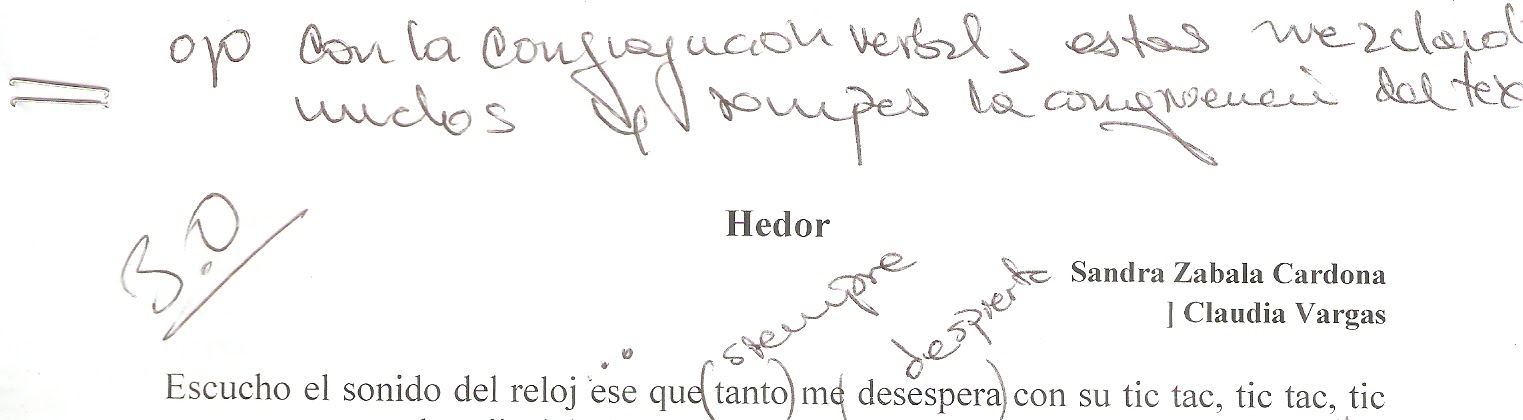 ojo con la conjugacion verbal, estas mezcland
muchos y rompes la congruencia del tex
3.0
Hedor
Sandra Zabala Cardona
] Claudia Vargas
siempre despierta
Escucho el sonido del reloj ese que (tanto) me (desespera) con su tic tac, tic tac, tic